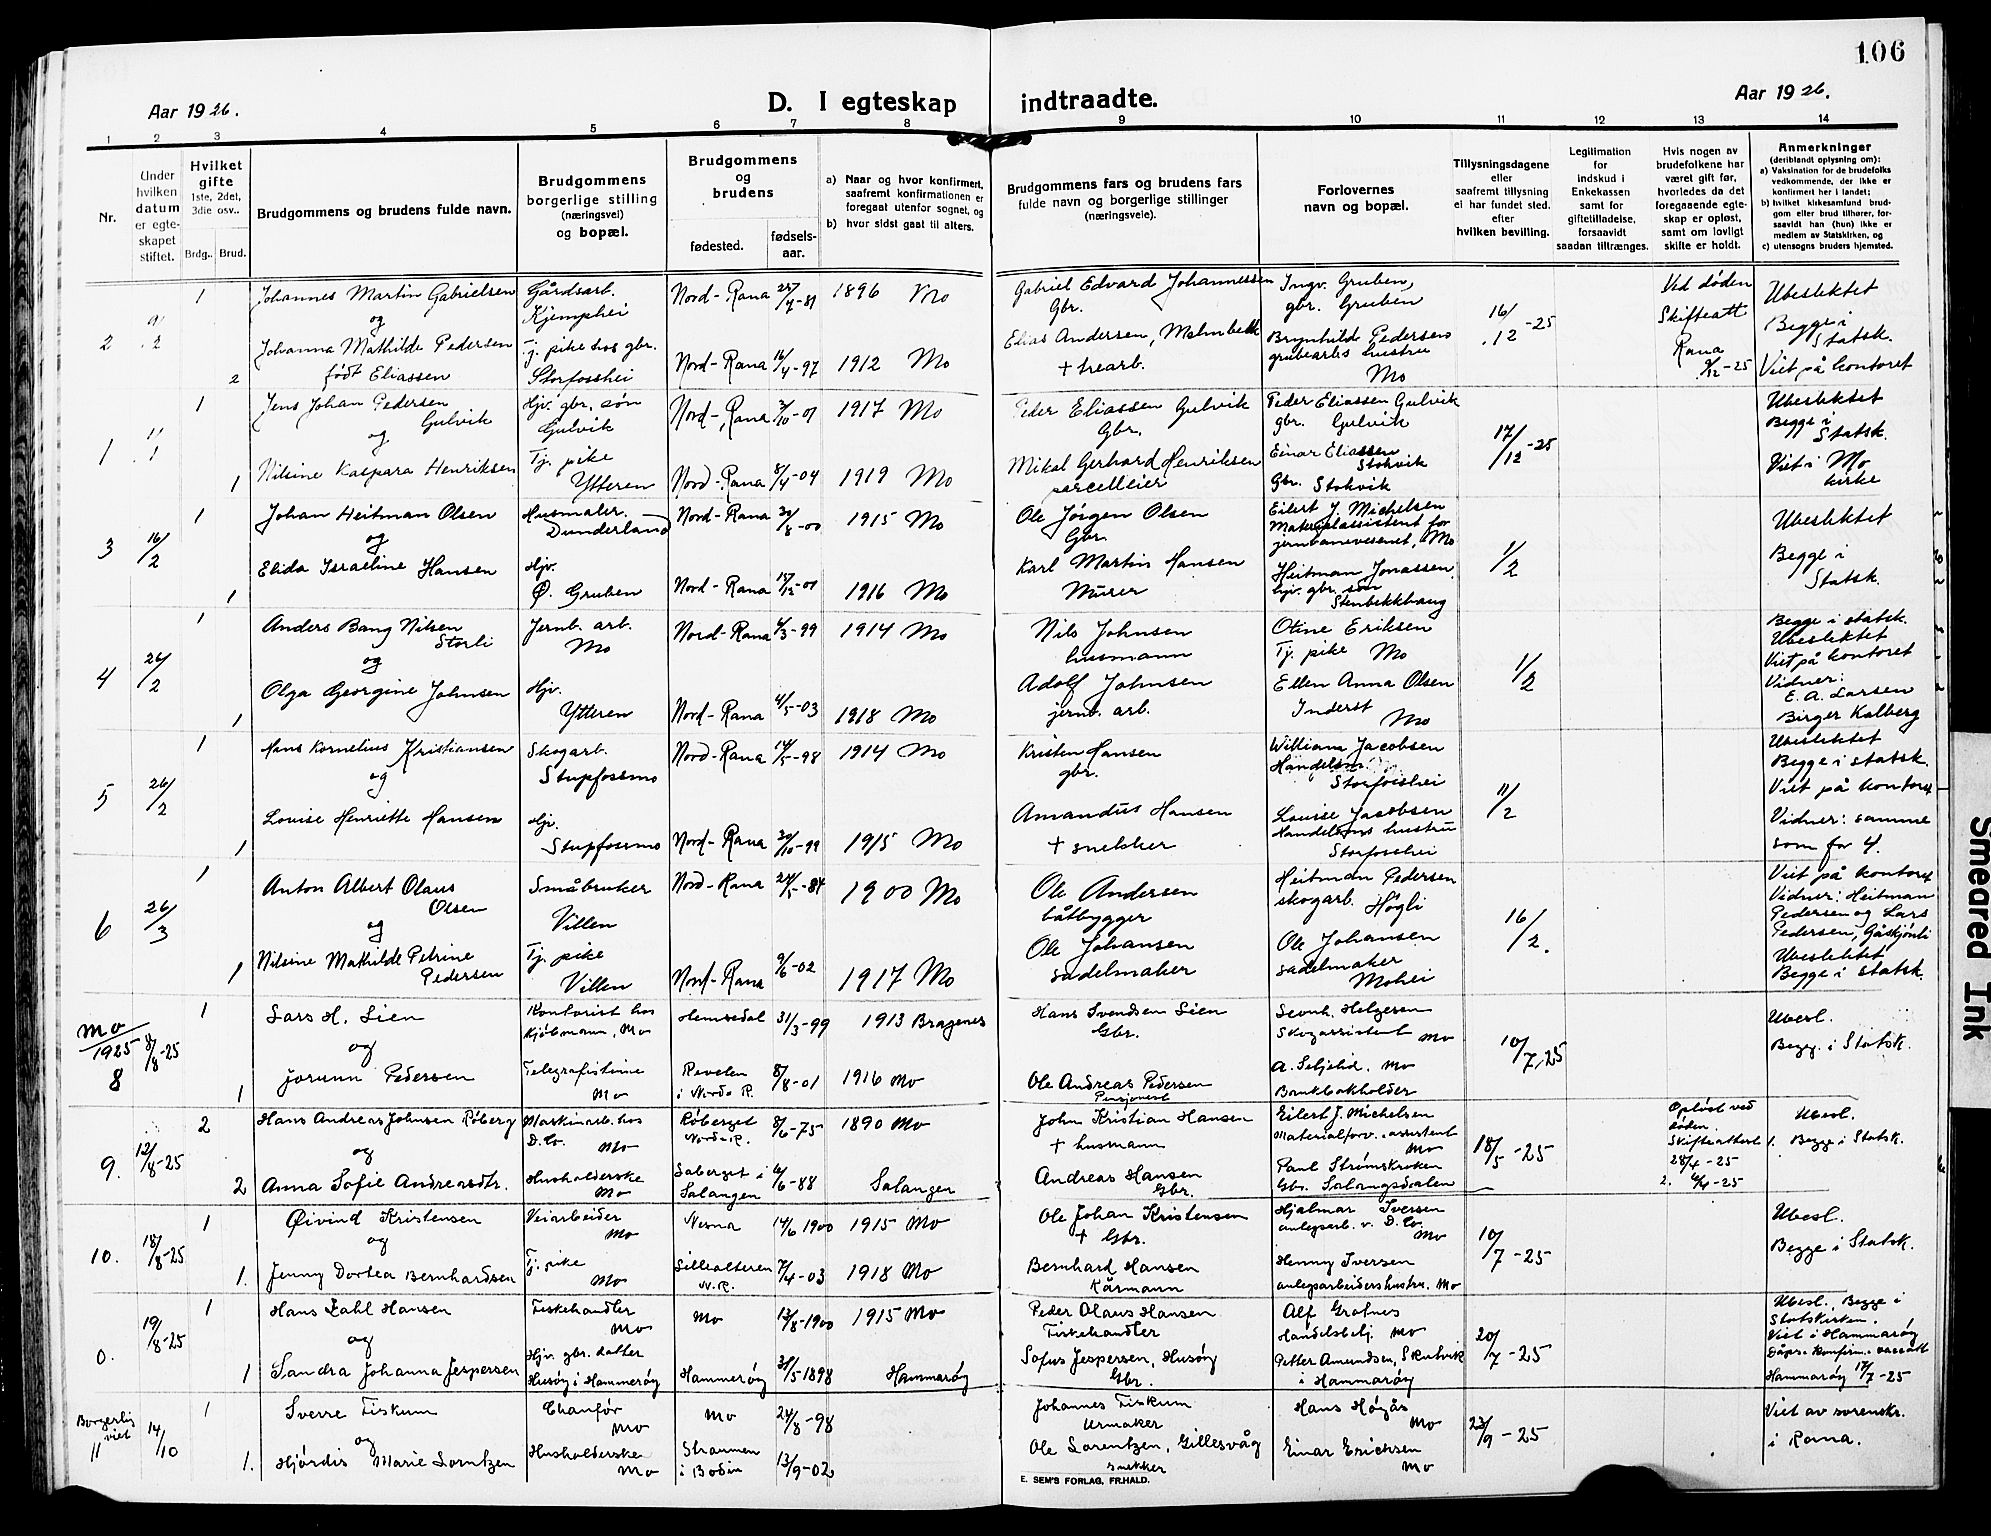 106
Aar 1926.
D. I egteskap indtraadte.
Aar 1926.
1 2 3 4 5 6 7 8 9 10 11 12 13 14
Nr.
Under hvilken datum er egteskapet stiftet.
Hvilket gifte 1ste, 2det, 3die osv..
Brdg.. Brud.
Brudgommens og brudens fulde navn.
Brudgommens borgerlige stilling (næringsvei) og bopæl.
Brudgommens og brudens
fødested.
fødselsaar.
a) Naar og hvor konfirmert, saafremt konfirmationen er foregaat utenfor sognet, og
b) hvor sidst gaat til alters.
Brudgommens fars og brudens fars fulde navn og borgerlige stillinger (næringsveie).
Forlovernes navn og bopæl.
Tillysningsdagene eller saafremt tillysning ei har fundet sted. efter hvilken bevilling.
Legitimation for indskud i Enkekassen samt for giftetilladelse, forsaavidt saadan tiltrænges.
Hvis nogen av brudefolkene har været gift før, hvorledes da det foregaaende egteskap er opløst, samt om lovligt skifte er holdt.
Anmerkninger (deriblandt oplysning om):
a) Vaksination for de brudefolks vedkommende, der ikke er konfirmert her i landet;
b) hvilket kirkesamfund brudgom eller brud tilhører, forsaavidt han (hun) ikke er medlem av Statskirken, og
c) utensogns bruders hjemsted.
2
1 Johannes Martin Gabrielsen Gårdsarb. Kjemphei Nord-Rana 1896 Mo Gabriel Edvard Johannessen Gbr. Ingv. Gruben, gbr. Gruben 16/12-25 Ved døden Skifteatt Rana 9/12-25 Ubeslektet
og
2 Johanna Mathilde Pedersen født Eliassen Tj. pike hos gbr. Storfosshei Nord-Rana 16/4-97 1912 Mo Elias Andersen, Malmbekk + trearb. Brynhild Pedersen grubearbs hustru Mo Begge i Statsk. Viet på kontoret
1
1 Jens Johan Pedersen Gulvik Hjv. gbr. søn Gulvik Nord-Rana 3/10-01 1917 Mo Peder Eliassen Gulvik Gbr. Peder Eliassen Gulvik gbr. Gulvik 17/12-25 Ubeslektet Begge i Statsk.
og
1 Nilsine Kaspara Henriksen Tj. pike Ytteren Nord-Rana 8/4-04 1919 Mo Mikal Gerhard Henriksen parcelleier Einar Eliassen Stokvik Gbr. Stokvik Viet i Mo kirke
3 16/2
1 Johan Heitman Olsen Husmaler. Dunderland Nord-Rana 30/8-00 1915 Mo Ole Jörgen Olsen Gbr. Eilert J. Michelsen Materialassistent for jernbanevesenet, Mo 1/2 Ubeslektet
og
1 Elida Israeline Hansen Hjv. Ø. Gruben Nord-Rana 1916 Mo Karl Martin Hansen Murer Heitman Jonassen, hjv. gbr. søn Stenbekkhaug Begge i Statsk.
4 26/2
1 Anders Bang Nilsen Storli Jernb. arb. Mo Nord-Rana 4/3-99 1914 Mo Nils Johnsen husmann Otine Eriksen Tj. pike Mo 1/2 Begge i statsk. Ubeslektet Viet på kontoret
og
1 Olga Georgine Johnsen Hjv. Ytteren Nord-Rana 4/5-03 1918 Mo Adolf Johnsen jernb. arb. Ellen Anna Olsen Inderst Mo Vidner: E. A. Larsen Birger Kalberg
5 26/2
1 Hans Kornelius Kristiansen Skogarb. Stupfossmo Nord-Rana 14/5-98 1914 Mo Kristen Hansen gbr. William Jacobsen Handelsm. Storfosshei 11/2 Ubeslektet Begge i statsk. Viet på kontoret
og
1 Louise Henriette Hansen Hjv. Stupfossmo Nord-Rana 30/10-99 1915 Mo Amandus Hansen + snekker Louise Jacobsen Handelsms hustru Storfosshei Vidner: samme som for 4.
6 26/3
1 Anton Albert Olaus Olsen Småbruker Villen Nord-Rana 24/5-84 1900 Mo Ole Andersen båtbygger Heitman Pedersen skogarb. Høgli 16/2. Viet på kontoret Vidner: Heitman Pedersen og Lars Pedersen, Gåskjønli
og
1 Nilsine Mathilde Petrine Pedersen Tj. pike Villen Nord-Rana 9/6-02 1917 Mo Ole Johansen sadelmaker Ole Johansen sadelmaker Mohei Ubeslektet Begge i Statsk.
Mo/1925 8 8/8-25
1 Lars H. Lien Kontorist hos Kjöbmann, Mo Hemsedal 31/3-99 1913 Bragenes Hans Svendsen Lien Gbr. Leonh. Helgesen Skogassistent Mo 10/7.25 Ubesl.
og
1 Jorunn Pedersen Telegrafistinne Mo Revelen i Nordr R. 8/8-01 1916 Mo Ole Andreas Pedersen Pensjonist A. Seljelid. Mo Bankbokholder Begg. i Statsk.
9. 12/8-25
2 Hans Andreas Johnsen Røberg Maskinarb. hos D. Co. Mo Røberget Nordr-R. 8/6-75 1890 Mo John Kristian Hansen + husmann Eilert J. Michelsen Materialforv. assistent Mo 18/5-25 Opløst ved døden. Skifteattest 1. 28/4-25 2. 4/4-25 Ubesl.
og
2 Anna Sofie Andreasdtr. Husholderske Mo Saberget i Salangen 4/6-88 Salangen Andreas Hansen Gbr. Paul Strømskroken Gbr. Salangsdalen Begge i Statsk.
10. 18/8-25
1 Øivind Kristensen Veiarbeider Mo Nesna 14/6 1900 1915 Mo Ole Johan Kristensen + Gbr. Hjalmar Iversen anlegsarb. v. D. Co. Mo 10/7-25 Ubesl.
og
1. Jenny Dortea Bernhardsen Tj. pike Mo Selfialteren N.R. 7/4-03 1918 Mo Bernhard Hansen Kårmann Henny Iversen anlegsarbeidershustru. Mo Begge i Statsk.
0. 19/8-25
1 Hans Zahl Hansen Fiskehandler Mo Mo 13/8-1900 1915 Mo Peder Olaus Hansen Fiskehandler Alf Grafnes Handelsbetj. Mo 20/7-25 Ubesl. Begge i Statskirken. Viet i Hammarøy
og
1 Sandra Johanna Jespersen Hjv. gbr. datter Husøy i Hammerøy Hammerøy 31/5-1898 Hammarøy Sofus Jespersen, Husøy Gbr. Petter Amundsen, Skutvik i Hammarøy Dåps- Konfirm.- vacsatt Hammarøy 17/7-25
Borgerlig viet 11 14/10
1 Sverre Fiskum Chauför Mo Mo 24/8-98 Johannes Fiskum Urmaker Hans Høgås Mo 23/9-25 Viet av sorenskr. i Rana.
og
1. Hjördis Marie Lorntzen Husholderske Mo Straumen i Bodin 13/9-02 Ole Lorentzen, Gillesvåg snekker Einar Erichsen Mo
E. SEM'S FORLAG, FR.HALD.
Smeared Ink